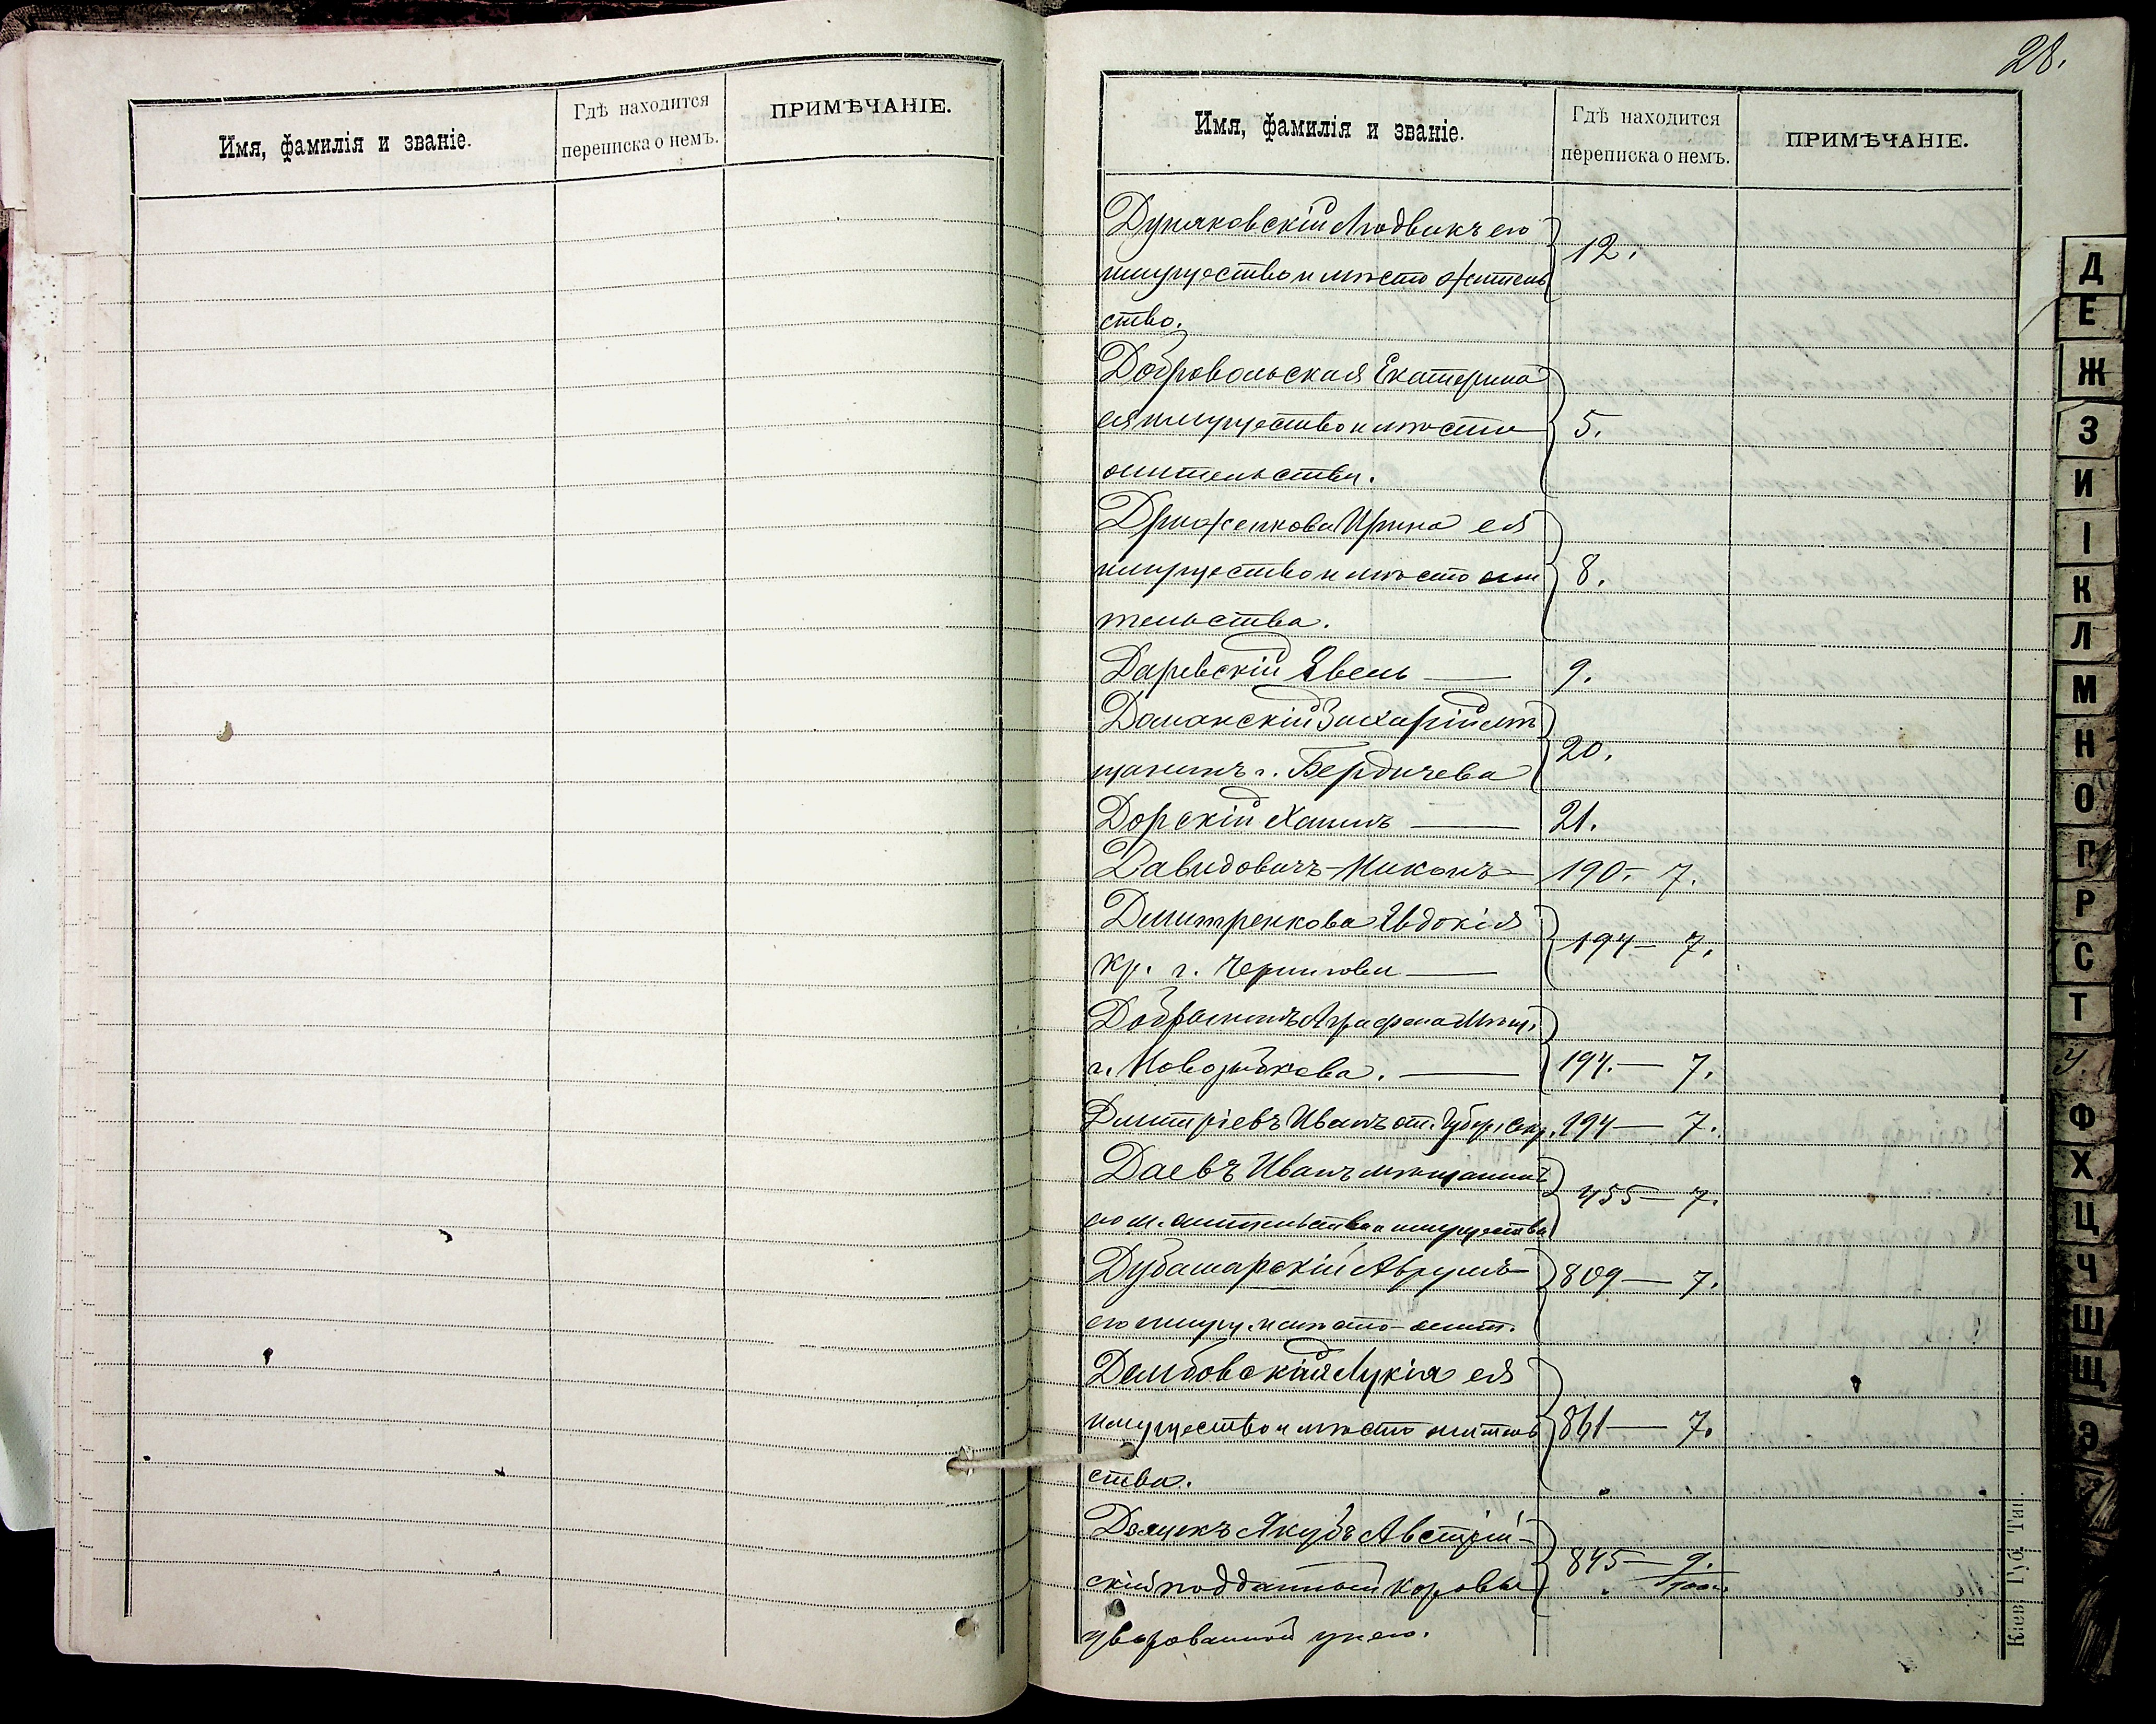 Имя, фамилія и званіе.
Гдѣ находится
переписка о немъ.
ПРИМѢЧАНІЕ.
28.
Имя, фамилія и званіе.
Гдѣ находится
переписка о немъ.
ПРИМѢЧАНІЕ.
Дуняковскій Людвикъ его
имущество и мѣсто житель 12.
ство.
Добровольская Екатерина
ея имущество и мѣсто 5.
жительства.
Дриженкова Ирина ея
имущество и мѣсто жи 8.
тельства.
Даревскій Явель — 9.
Доманскій Захарій мѣ
щанинъ г. Бердичева 20.
Дорскій Хаимъ — 21.
Давидовичъ Никонъ 190 — 7.
Дмитренкова Евдокія
кр. г. Чернигова — 194 — 7.
Аграфена Мѣщ.
г. Новозыбкова. — 194. — 7.
Дмитріевъ Иванъ от. Губер. Секр. 194 — 7.
Даевъ Иванъ мѣщанинъ
его м. жительства и имущества 455 — 7.
Дубашарскій Аврумъ 809 — 7.
его имущ. и мѣсто жит.
Дембовская Лукія ея
имущество и мѣсто житель 861 — 7.
ства.
Якубъ Австрій-
скій подданный коровы 845 — 9.
уворованной у него.
Кіев. Губ. Тип.
Д
Е
Ж
З
И
І
К
Л
М
Н
О
П
Р
С
Т
У.
Ф
Х
Ц
Ч
Ш
Щ
Э